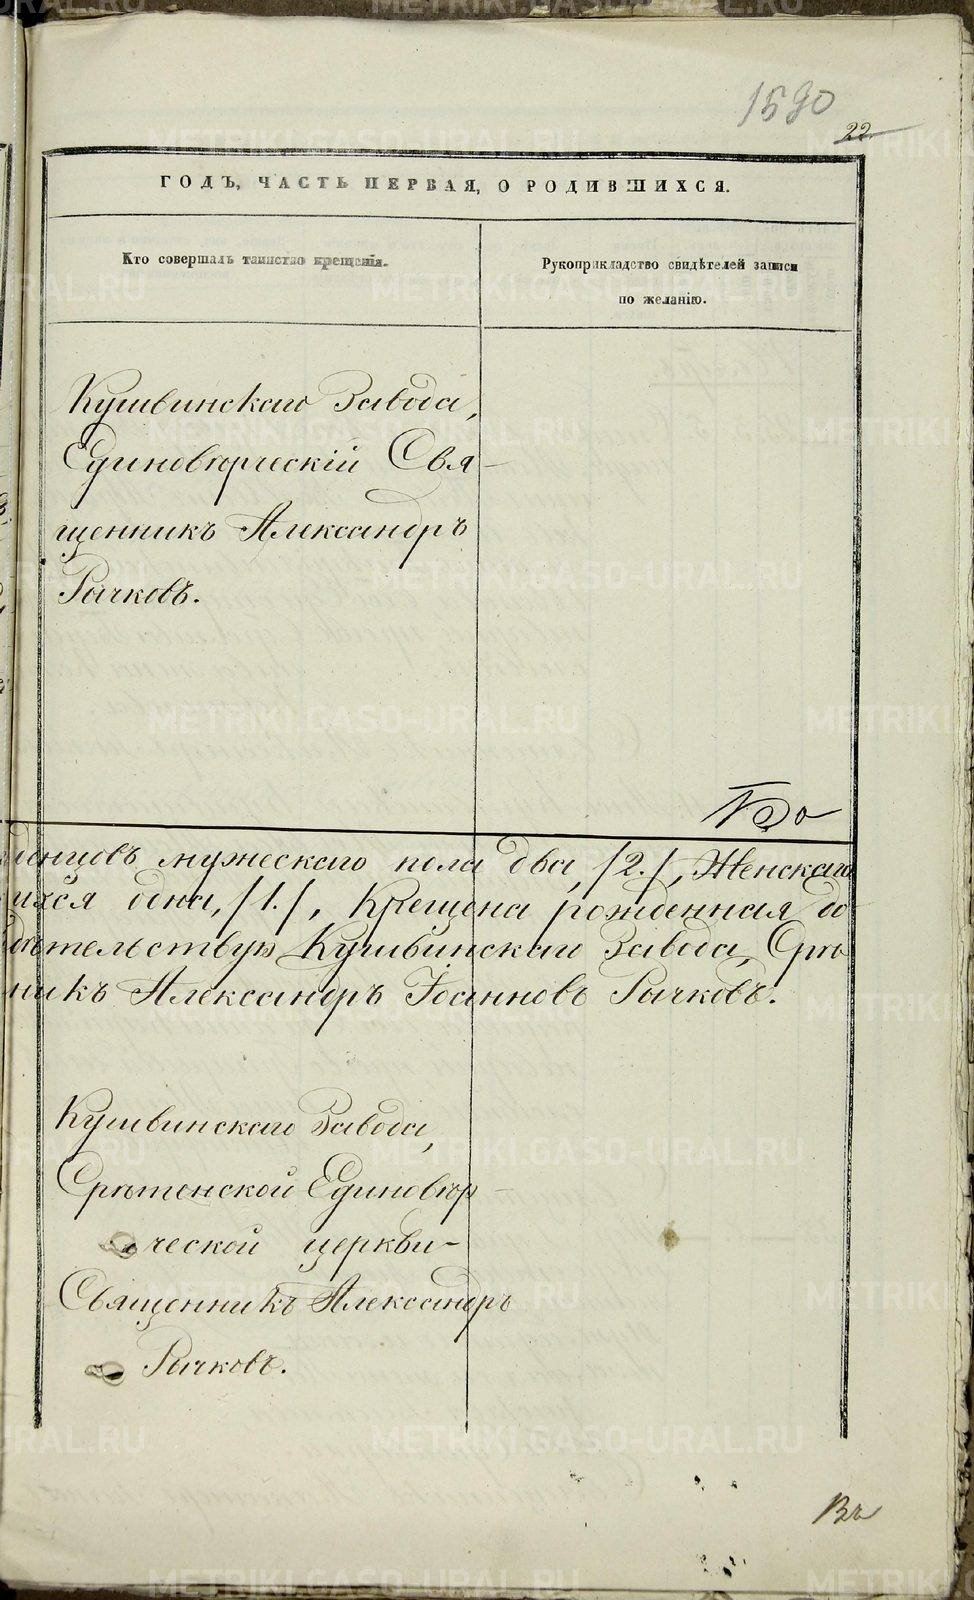 1590
22
ГОДЪ, ЧАСТЬ ПЕРВАЯ, О РОДИВШИХСЯ.
Кто совершалъ таинство крещенія.
Рукоприкладство свидѣтелей записи
по желанію.
Кушвинскаго Завода,
Единовѣрческій Свя-
щенникъ Александръ
Рычковъ.
денцовъ мужескаго пола два, /2./, Женскаго
ихся одна, /1./, Крещена рожденная до
дѣтельствую Кушвинскаго Завода, Срѣ
никъ Александръ Іоанновъ Рычковъ.
Кушвинскаго Завода,
Срѣтенской Единовѣр-
ческой церкви-
Священникъ Александръ
Рычковъ.
METRIKI.GASO-URAL.RU